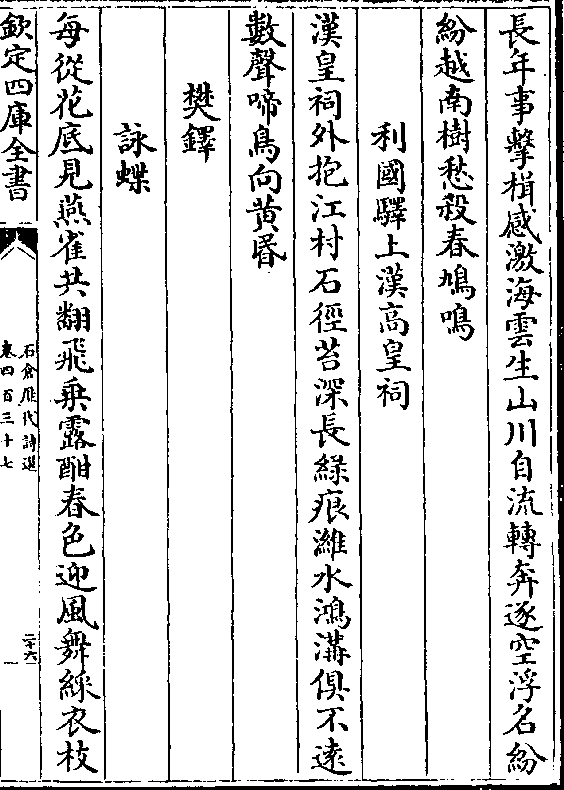 長年事擊楫感激海雲生山川自流轉奔逐空浮名紛
紛越南樹愁殺春鳩鳴
利國驛上漢高皇祠
漢皇祠外抱江村石徑苔深長綠痕濰水鴻溝俱不遠
數聲啼鳥向黃昏
樊鐸
詠蝶
每從花底見燕雀共翻飛乗露酣春色迎風舞綵衣枝
欽定四庫全書
石倉歴代詩選
卷四百三十七
二十六